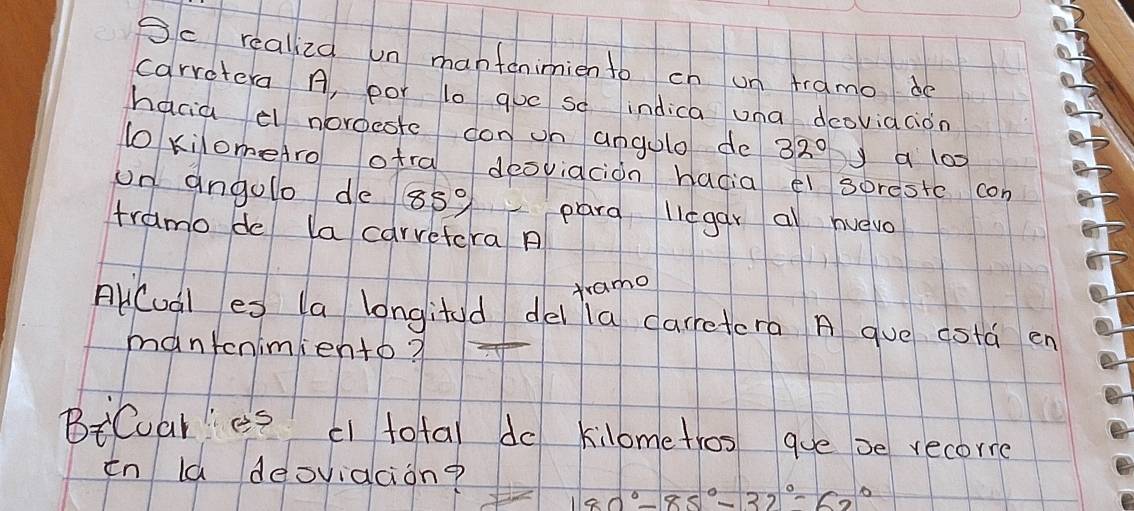 Se realiza un mantenimiento en un tramo de
carretera A, por lo que se indica una desviación
hacia el noroeste con un angulo de 32° y a los
10 Kilometro otra desviación hacia el soreste con
un angulo de 85° para llegar al nuevo
tramo de la carretera A
A) ¿Cuál es la longitud del tramo la carretera A que está en
mantenimiento?
B) ¿Cual es el total de Kilometros que se recorre
en la desviación?
180° - 85° - 32° = 62°